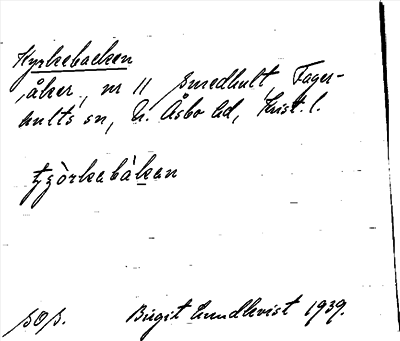 Kyrkebacken
åker, nr 11 Smedhult, Fager-
hults sn, N. Åsbo hd, Krist. l.
tjörkebàkan
sOs. Birgit Lundkvist 1939.